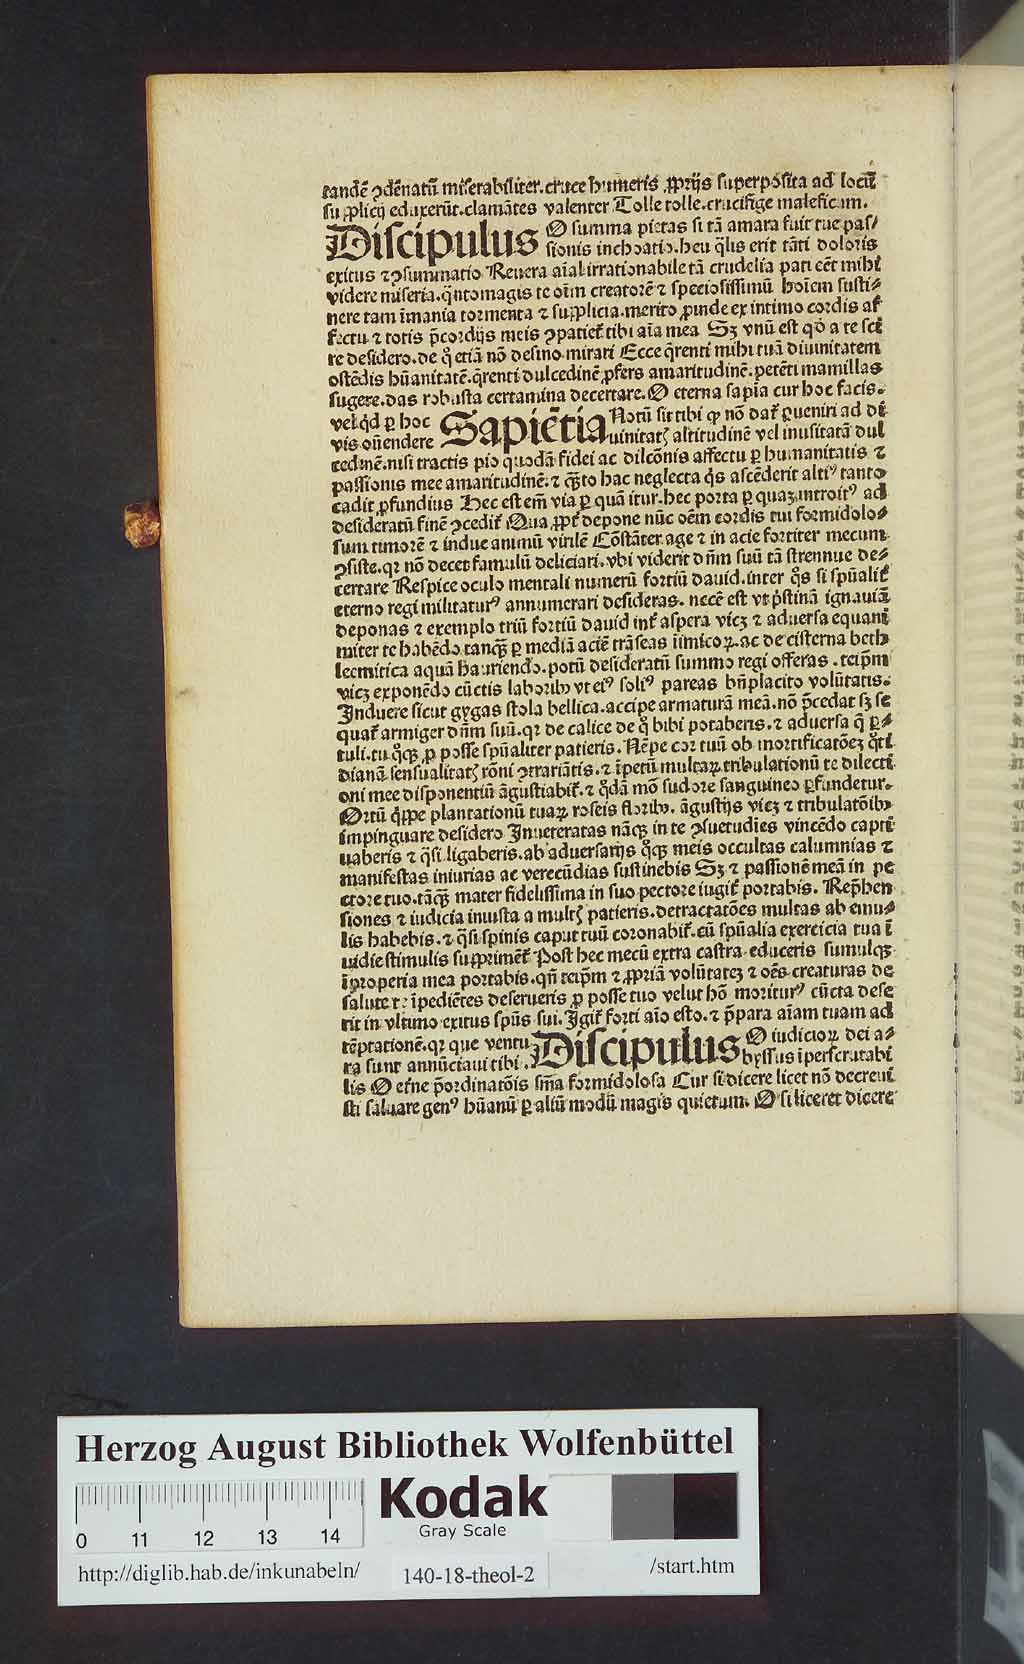 tandē ꝯdēnatū miserabiliter. cruce humeris ꝓprijs superposita ad locū
supplicij eduxerūt. clamātes valenter Tolle tolle. crucifige maleficum.
Discipulus O summa pietas si tā amara fuit tue pas⸗
sionis inchoatio. heu q̄lis erit tāti doloris
exitus ⁊ ꝯsummatio Reuera aīal irrationabile tā crudelia pati cēt mihi
videre miseria. q̄ntomagis te oīm creatorē ⁊ speciosissimū hoīem susti⸗
nere tam īmania tormenta ⁊ supplicia. merito ꝓinde ex intimo cordis af
fectu ⁊ totis p̄cordijs meis ꝯpatiet̄ tibi aīa mea Sꝫ vnū est qd̄ a te sci
re desidero. de q̊ etiā nō desino mirari Ecce q̄renti mihi tuā diuinitatem
ostēdis hūanitatē. q̄renti dulcedinē ꝓfers amaritudinē. petēti mamillas
sugere. das robusta certamina decertare. O eterna sapīa cur hoc facis.
vel qͥd ꝑ hoc Sapiētia Notū sit tibi ꝙ nō dat̄ ꝑueniri ad di
vis oūendere uinitatꝭ altitudinē vel inusitatā dul
cedinē. nisi tractis pio quodā fidei ac dilcōnis affectu ꝑ humanitatis ⁊
passionis mee amaritudinē. ⁊ qͣ̄to hac neglecta qͥs ascēderit altiꝰ tanto
cadit ꝓfundius Hec est em̄ via ꝑ quā itur. hec porta ꝑ quaꝫ introitꝰ ad
desideratū finē ꝯcedit̄ Qua ꝓpt̄ depone nūc oēm cordis tui formidolo⸗
sum timorē ⁊ indue animū virilē Cōstāter age ⁊ in acie fortiter mecum
ꝯsiste. qꝛ nō decet famulū deliciari. vbi viderit dn̄m suū tā strennue de⸗
certare Respice oculo mentali numerū fortiū dauid. inter q̊s si spūalit̄
eterno regi militaturꝰ annumerari desideras. necē est vt pͥstinā ignauiā
deponas ⁊ exemplo triū fortiū dauid int̄ aspera viꝫ ⁊ aduersa equani
miter te habēdo tanqͣꝫ ꝑ mediā aciē trāseas īimicoꝝ. ac de cisterna beth
leemitica aquā hauriendo. potū desideratū summo regi offeras. teip̄m
viꝫ exponēdo cūctis laboribꝰ vt eiꝰ soliꝰ pareas bn̄placito volūtatis.
Induere sicut gygas stola bellica. accipe armaturā meā. nō p̄cedat sꝫ se
quat̄ armiger dn̄m suū. qꝛ de calice de q̊ bibi potaberis. ⁊ aduersa q̄ ꝑ⸗
tuli. tu q̊qꝫ ꝓ posse spūaliter patieris. Nēpe cor tuū ob mortificatōeꝫ q̊ti
dianā sensualitatꝭ rōni ꝯtrariātis. ⁊ īpetū multaꝝ tribulationū te dilecti
oni mee disponentiū āgustiabit̄. ⁊ q̊dā mō sudore sanguineo ꝑfundetur.
Ortū qͥppe plantationū tuaꝝ roseis floribꝰ. āgustijs viꝫ ⁊ tribulatōibꝰ
impinguare desidero Inueteratas nāqꝫ in te ꝯsuetudīes vincēdo capti
uaberis ⁊ q̄si ligaberis. ab aduersarijs q̊qꝫ meis occultas calumnias ⁊
manifestas iniurias ac verecūdias sustinebis Sꝫ ⁊ passionē meā in pe
ctore tuo. tāqͣꝫ mater fidelissima in suo pectore iugit̄ portabis. Rep̄hen
siones ⁊ iudicia iniusta a multꝭ patieris. detractatōes multas ab emu⸗
lis habebis. ⁊ q̄si spinis caput tuū coronabit̄. cū spūalia exercicia tua ī
uidie stimulis supprimēt̄ Post hec mecū extra castra educeris simulqꝫ
īproperia mea portabis. qn̄ teip̄m ⁊ ꝓpriā volūtateꝫ ⁊ oēs creaturas de
salute te īpediētes deserueris ꝓ posse tuo velut hō moriturꝰ cūcta dese
rit in vltimo exitus spūs sui. Igit̄ forti aīo esto. ⁊ p̄para aīam tuam ad
tēptationē. qꝛ que ventu Discipulus O iudicioꝝ dei a⸗
ra sunt annūciaui tibi. byssus īperscrutabi
lis O etn̄e p̄ordinatōis sn̄ia formidolosa Cur si dicere licet nō decreui
sti saluare genꝰ hūanū ꝑ aliū modū magis quietum. O si liceret dicere
Herzog August Bibliothek Wolfenbüttel
Kodak
Gray Scale
0 11 12 13 14
http://diglib.hab.de/inkunabeln/ 140-18-theol-2 /start.htm